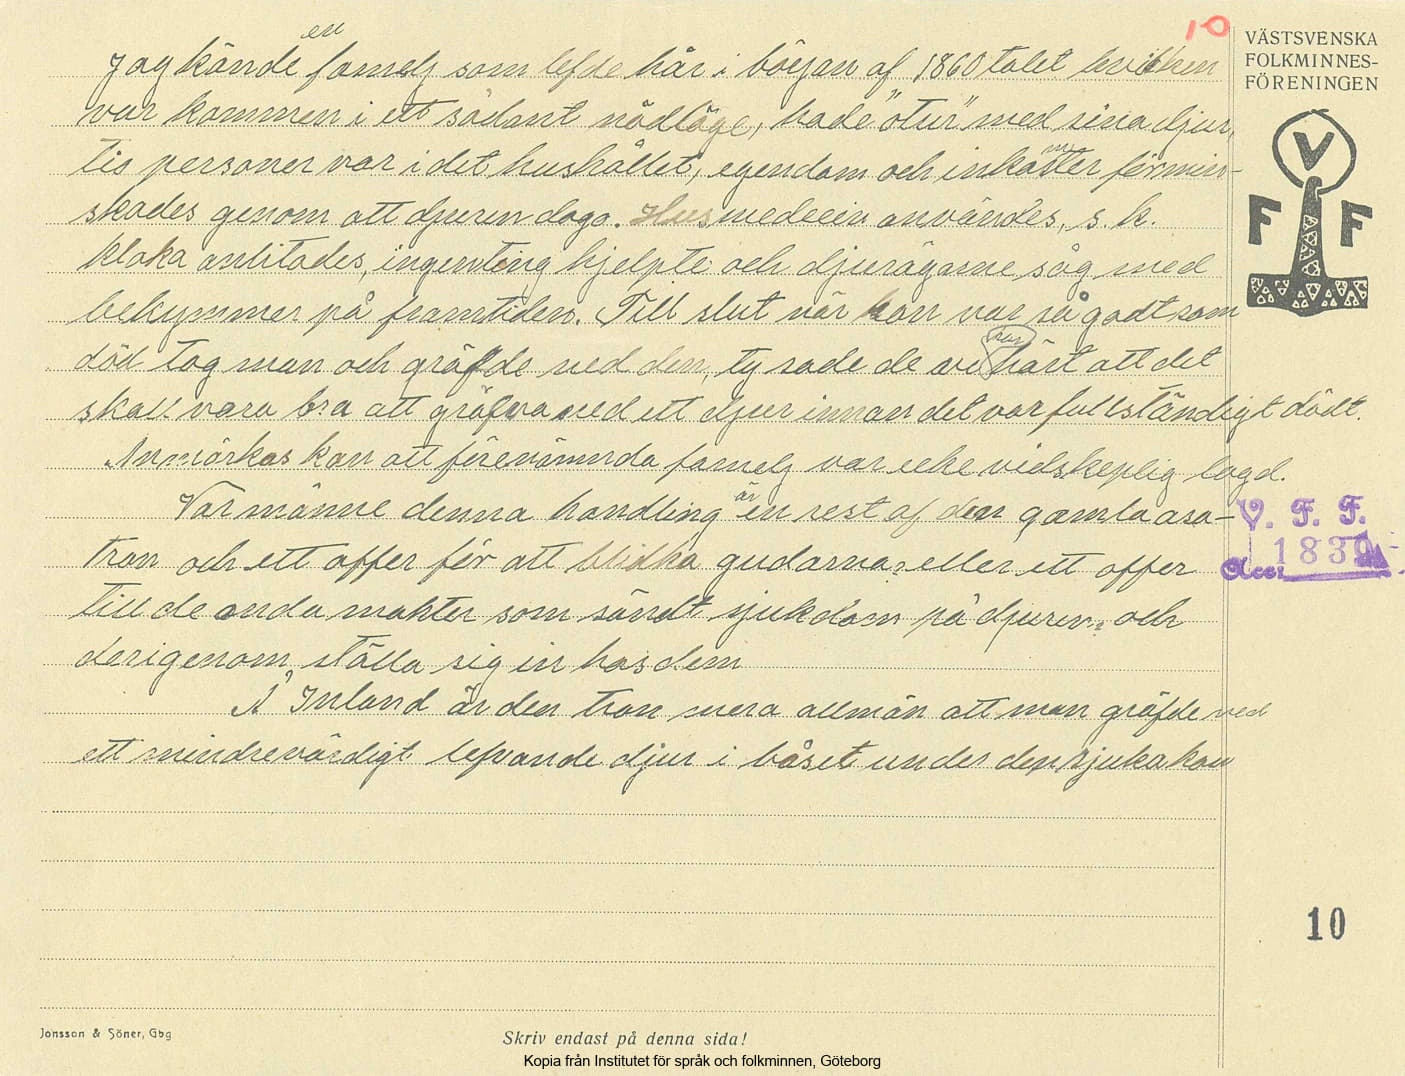 10
VÄSTSVENSKA
FOLKMINNES-
FÖRENINGEN
V
F F
Jag kände en familj som lefde här i början af 1860 talet hvilken
var kommen i ett sådant nödläge, hade "otur" med sina djur,
tio personer var i det hushållet, egendom och inkomster förmin-
skades genom att djuren dogo. Husmedecin användes, s. k.
kloka anlitades, ingenting hjelpte och djurägarne såg med
bekymmer på framtiden. Till slut när kon var så godt som
död tog man och gräfde ned den, ty sade de vi har hört att det
skall vara bra att gräfva ned ett djur innan det var fullständigt dödt.
Anmärkas kan att förenämnda familj var icke vidskeplig lagd.
Var månne denna handling är en rest af den gamla asa-
tron och ett offer för att blidka gudarna? eller ett offer
till de onda makter som sändt sjukdom på djuren? och
derigenom ställa sig in hos dem
Å Inland är den tron mera allmän att man gräfde ned
ett mindrevärdigt lefvande djur i båset under den sjuka kon
V. F. F.
Acc: 1839
10
Jonsson & Söner, Gbg
Skriv endast på denna sida!
Kopia från Institutet för språk och folkminnen, Göteborg